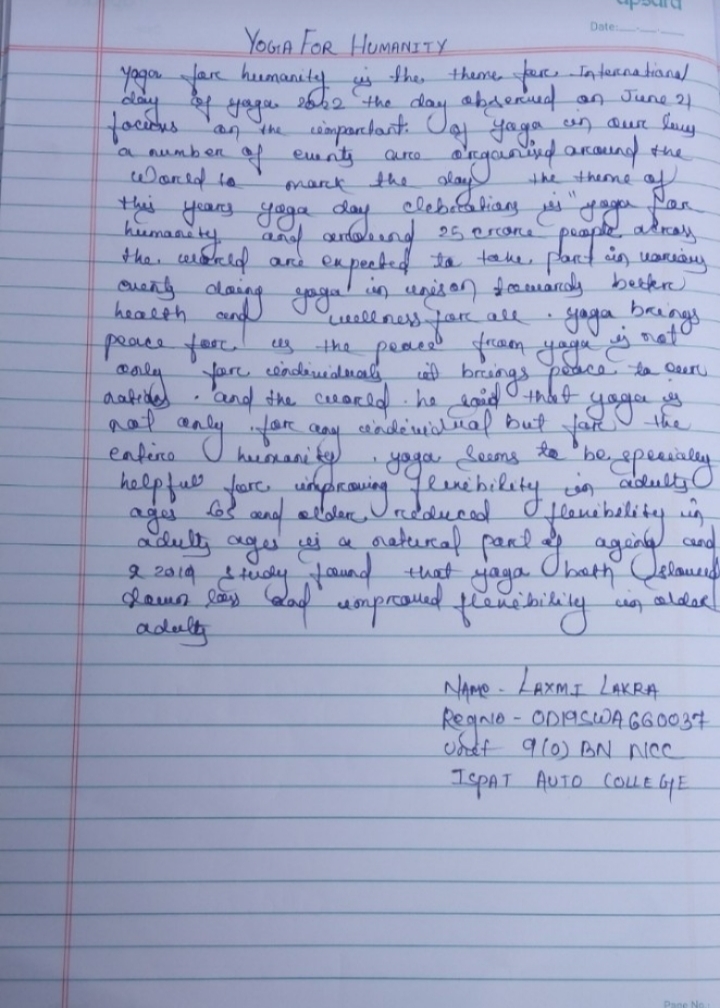 apsara
Date:
YOGA FOR HUMANITY
yoga for humanity is the theme for International
day of yoga 2022 the day observed on June 21
focious on the important. Of yoga in our lous
a number of events are organised around the
World to mark the day the theme of
this years yoga day clebrations is "yoga for
humanity and around 25 crore people across
the world are expected to take part in various
events doing yoga in unison towards better
health and wellness for all. yoga brings
peace for us the peace from yoga is not
only for individuals it brings peace to our
natides. and the world. he said that yoga is
not only for any individual but for the
entire humanity. yoga seems to be specially
helpful for improving flexibility in adults
ages 65 and older reduced flexibility in
adults ages is a natural part of ageing and
a 2019 study found that yoga both slowed
down loss and improved flexibility in older
adults
NAME - LAXMI LAKRA
RegNo - OD19SWAGG0037
Unit 9(O) BN NCC
ISPAT AUTO COLLEGE
Page No.: